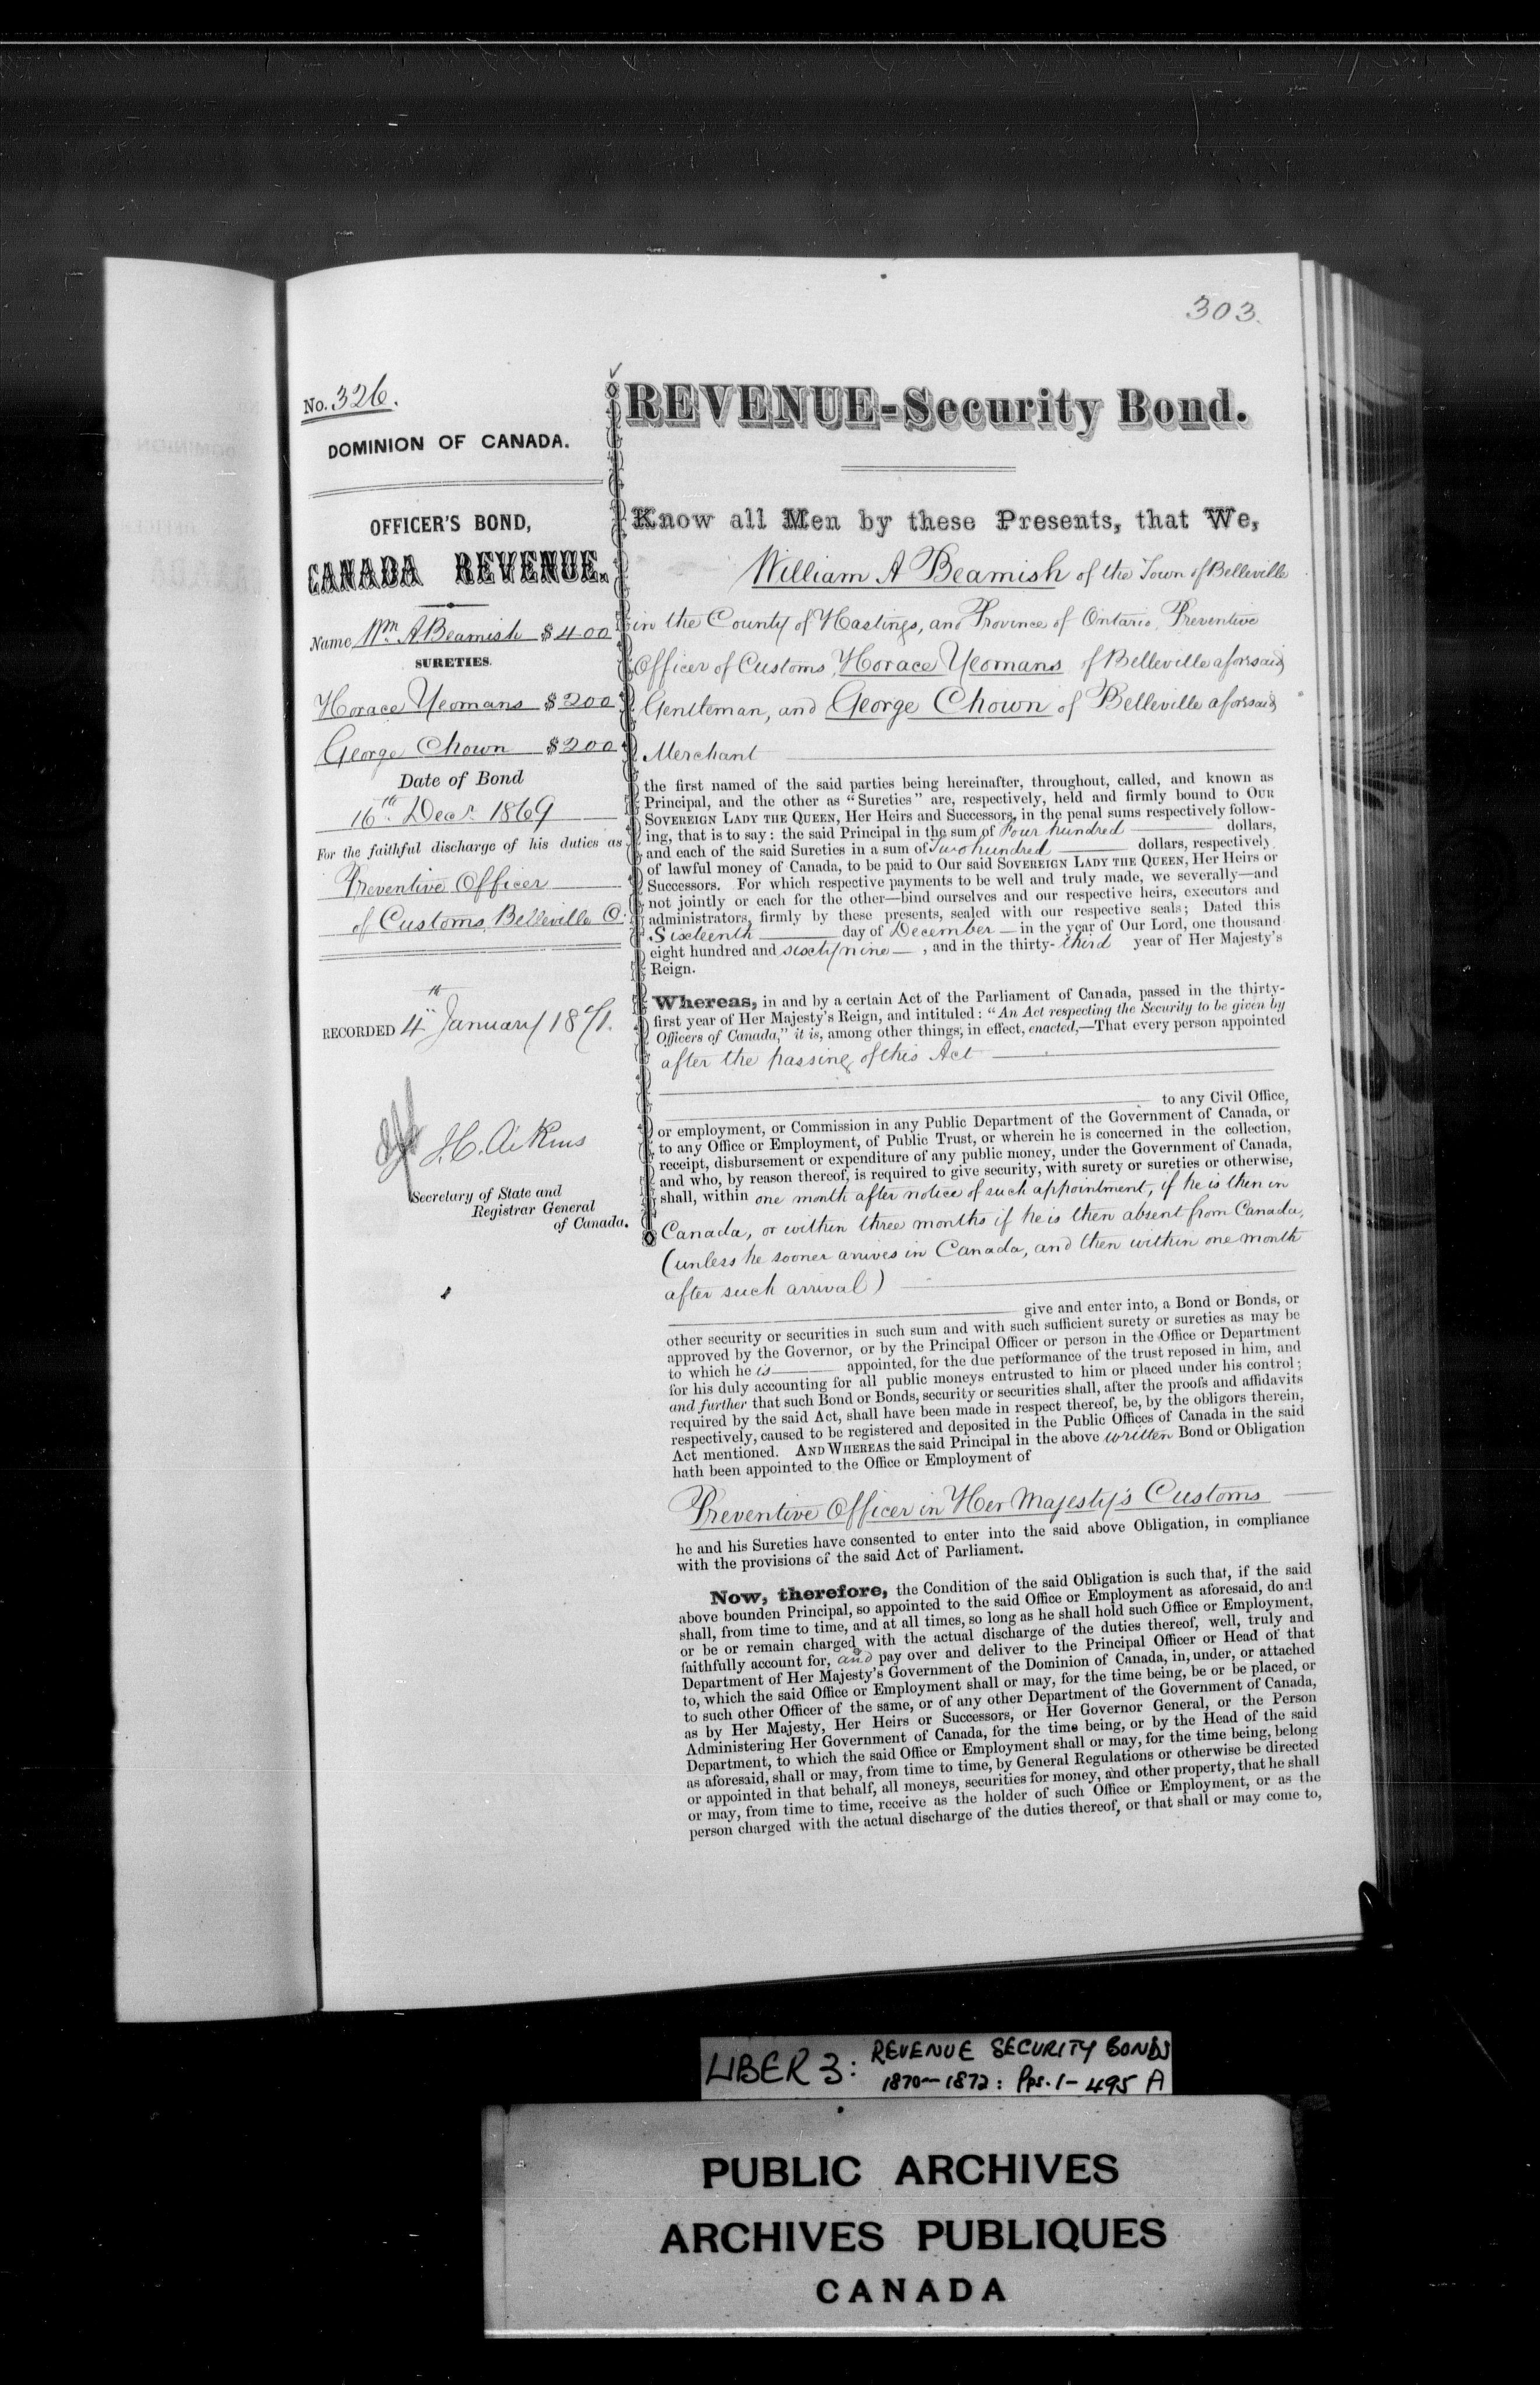 303.
No. 326.
DOMINION OF CANADA.
OFFICER'S BOND,
CANADA REVENUE.
Name Wm. A Beamish $400
SURETIES.
Horace Yeomans $200
George Chown $200
Date of Bond
16th Decr. 1869
For the faithful discharge of his duties as
Preventive Officer
of Customs, Belleville O.
RECORDED 4th January 1871.
J.C. Aikins
Secretary of State and
Registrar General
of Canada.
REVENUE-Security Bond.
Know all Men by these Presents, that We,
William A Beamish of the Town of Belleville
in the County of Hastings, and Province of Ontario, Preventive
Officer of Customs, Horace Yeomans of Belleville aforesaid
Gentleman, and George Chown of Belleville aforesaid
Merchant
the first named of the said parties being hereinafter, throughout, called, and known as
Principal, and the other as "Sureties" are, respectively, held and firmly bound to OUR
SOVEREIGN LADY THE QUEEN, Her Heirs and Successors, in the penal sums respectively follow-
ing, that is to say: the said Principal in the sum of Four hundred dollars,
and each of the said Sureties in a sum of Two hundred dollars, respectively
of lawful money of Canada, to be paid to Our said SOVEREIGN LADY THE QUEEN, Her Heirs or
Successors. For which respective payments to be well and truly made, we severally—and
not jointly or each for the other—bind ourselves and our respective heirs, executors and
administrators, firmly by these presents, sealed with our respective seals; Dated this
Sixteenth day of December in the year of Our Lord, one thousand
eight hundred and sixty nine, and in the thirty-third year of Her Majesty's
Reign.
Whereas, in and by a certain Act of the Parliament of Canada, passed in the thirty-
first year of Her Majesty's Reign, and intituled: "An Act respecting the Security to be given by
Officers of Canada," it is, among other things, in effect, enacted,—That every person appointed
after the passing of this Act
to any Civil Office,
or employment, or Commission in any Public Department of the Government of Canada, or
to any Office or Employment, of Public Trust, or wherein he is concerned in the collection,
receipt, disbursement or expenditure of any public money, under the Government of Canada,
and who, by reason thereof, is required to give security, with surety or sureties or otherwise,
shall, within one month after notice of such appointment, if he is then in
Canada, or within three months if he is then absent from Canada,
(unless he sooner arrives in Canada, and then within one month
after such arrival)
give and enter into, a Bond or Bonds, or
other security or securities in such sum and with such sufficient surety or sureties as may be
approved by the Governor, or by the Principal Officer or person in the Office or Department
to which he is appointed, for the due performance of the trust reposed in him, and
for his duly accounting for all public moneys entrusted to him or placed under his control;
and further that such Bond or Bonds, security or securities shall, after the proofs and affidavits
required by the said Act, shall have been made in respect thereof, be, by the obligors therein,
respectively, caused to be registered and deposited in the Public Offices of Canada in the said
Act mentioned. AND WHEREAS the said Principal in the above written Bond or Obligation
hath been appointed to the Office or Employment of
Preventive Officer in Her Majesty's Customs
he and his Sureties have consented to enter into the said above Obligation, in compliance
with the provisions of the said Act of Parliament.
Now, therefore, the Condition of the said Obligation is such that, if the said
above bounden Principal, so appointed to the said Office or Employment as aforesaid, do and
shall, from time to time, and at all times, so long as he shall hold such Office or Employment,
or be or remain charged with the actual discharge of the duties thereof, well, truly and
faithfully account for, and pay over and deliver to the Principal Officer or Head of that
Department of Her Majesty's Government of the Dominion of Canada, in, under, or attached
to, which the said Office or Employment shall or may, for the time being, be or be placed, or
to such other Officer of the same, or of any other Department of the Government of Canada,
as by Her Majesty, Her Heirs or Successors, or Her Governor General, or the Person
Administering Her Government of Canada, for the time being, or by the Head of the said
Department, to which the said Office or Employment shall or may, for the time being, belong
as aforesaid, shall or may, from time to time, by General Regulations or otherwise be directed
or appointed in that behalf, all moneys, securities for money, and other property, that he shall
or may, from time to time, receive as the holder of such Office or Employment, or as the
person charged with the actual discharge of the duties thereof, or that shall or may come to,
LIBER 3: REVENUE SECURITY BONDS
1870-1872: Pps. 1-495 A
PUBLIC ARCHIVES
ARCHIVES PUBLIQUES
CANADA